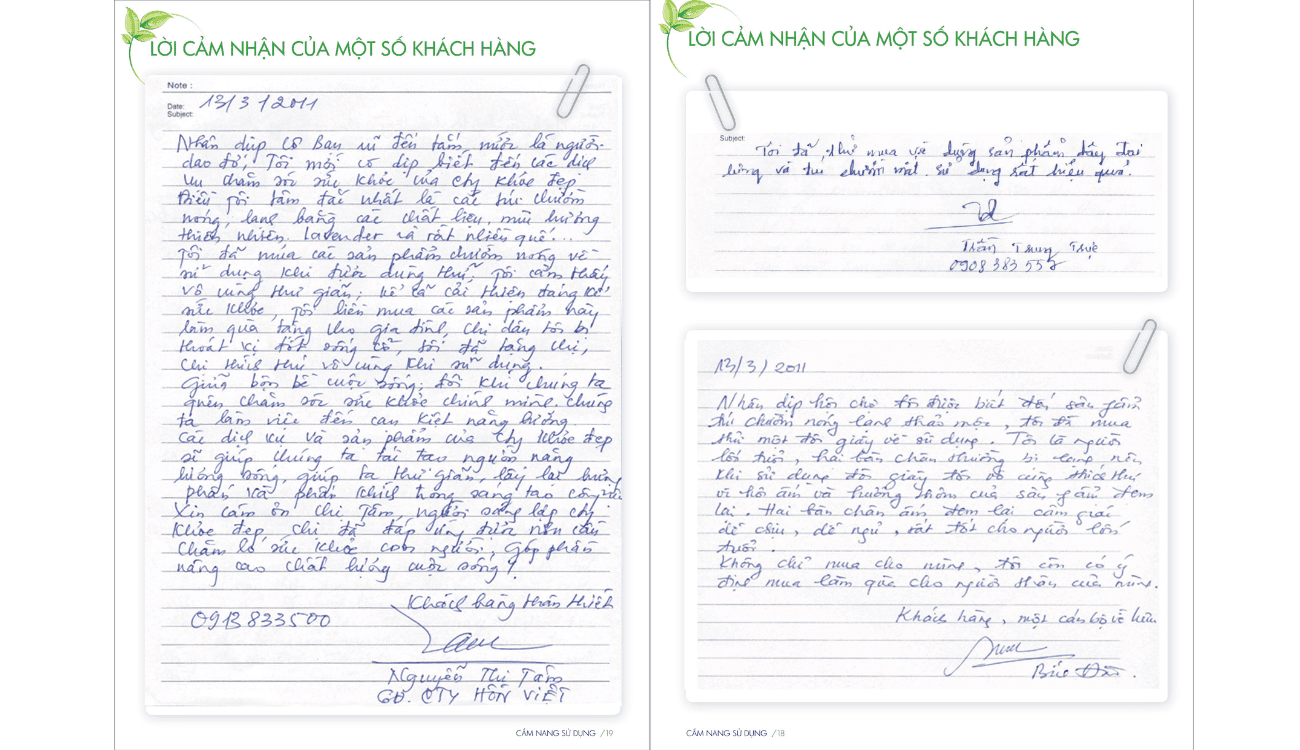 LỜI CẢM NHẬN CỦA MỘT SỐ KHÁCH HÀNG
Note :
Date: 13/3/2011
Subject:
Nhân dịp cô bạn đến tắm, mới là người
dao đỏ, Tôi mới có dịp biết đến các dịch
vụ chăm sóc sức khỏe của cty Khỏe đẹp
Điều tôi tâm đắc nhất là các túi chườm
nóng, lạnh bằng các chất liệu, mùi hương
thiên nhiên. lavender và rất nhiều quế...
Tôi đã mua các sản phẩm chườm nóng về
sử dụng khi được dùng thử, tôi cảm thấy
vô cùng thư giãn, kể cả cải thiện đáng kể
sức khỏe, tôi liền mua các sản phẩm này
làm quà tặng cho gia đình, chị dâu tôi bị
thoát vị đốt sống cổ, tôi đã tặng chị,
chị thích thú vô cùng khi sử dụng.
Giữa bộn bề cuộc sống, đôi khi chúng ta
quên chăm sóc sức khỏe chính mình. chúng
ta làm việc đến cạn kiệt năng lượng.
Các dịch vụ và sản phẩm của cty Khỏe đẹp
sẽ giúp chúng ta tái tạo nguồn năng
lượng sống, giúp ta thư giãn, lấy lại hưng
phấn và phấn khích trong sáng tạo công việc
Xin cảm ơn chị Tâm, người sáng lập cty
Khỏe đẹp, chị đã đáp ứng được nhu cầu
chăm lo sức khỏe con người, góp phần
nâng cao chất lượng cuộc sống!
Khách hàng thân thiết
0913833500
Nguyễn Thị Tâm
GĐ. CTY HỒN VIỆT
CẨM NANG SỬ DỤNG /19
LỜI CẢM NHẬN CỦA MỘT SỐ KHÁCH HÀNG
Subject:
Tôi đã thử mua về dụng sản phẩm đây đai
lưng và túi chườm mắt. sử dụng rất hiệu quả.
Trần Trung Trực
0908 383 557
13/3/2011
Nhân dịp hội chợ tôi được biết đến sản phẩm
túi chườm nóng lạnh thảo mộc, tôi đã mua
thử một đôi giày về sử dụng. Tôi là người
lớn tuổi, hai bàn chân thường bị lạnh nên
khi sử dụng đôi giày tôi vô cùng thích thú
vì hơi ấm và hương thơm của sản phẩm đem
lại. Hai bàn chân ấm đem lại cảm giác
dễ chịu, dễ ngủ, rất tốt cho người lớn
tuổi.
Không chỉ mua cho mình, tôi còn có ý
định mua làm quà cho người thân của mình.
Khách hàng, một cán bộ về hưu
CẨM NANG SỬ DỤNG /18